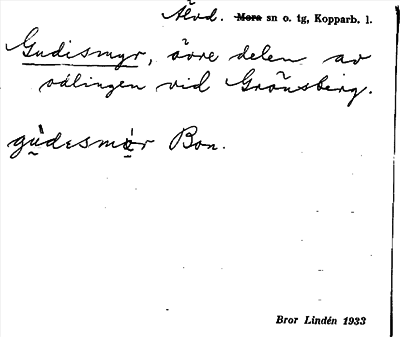 Älvd. Mora sn o. tg, Kopparb. l.
Gudismyr, övre delen av
odlingen vid Grönsberg.
gùdɛsmỳr Bon.
Bror Lindén 1933